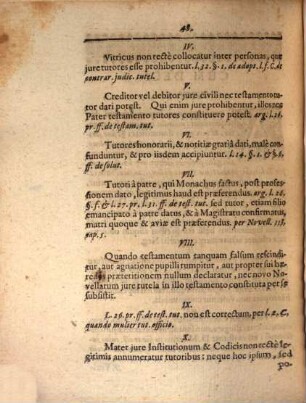 48.
IV.
Vitricus non rectè collocatur inter personas, quæ
jure tutores esse prohibentur. l. 32. §. 1. de adopt. l. f. C. de
contrar. judic. tutel.
V.
Creditor vel debitor jure civili nec testamento tutor
dari potest. Qui enim jure prohibentur, illos nec
Pater testamento tutores constituere potest. arg. l. 26.
pr. ff. de testam. tut.
VI.
Tutores honorarii, & notitiæ gratiâ dati, malè con-
funduntur, & pro iisdem accipiuntur. l. 14. §. 1. & §. 6.
ff. de solut.
VII.
Tutori à patre, qui Monachus factus, post profes-
sionem dato, legitimus haud est præferendus. arg. l. 26.
§. f. & l. 27. pr. l. 31. ff. de test. tut. sed tutor, etiam filio
emancipato à patre datus, & à Magistratu confirmatus,
matri quoque & aviæ est præferendus. per Novell. 118.
cap. 5.
VIII.
Quando testamentum tanquam falsum rescindi-
tur, aut agnatione pupilli rumpitur, aut propter sui hæ-
redis præteritionem nullum declaratur, nec novo No-
vellarum jure tutela in illo testamento constituta per se
subsistit.
IX.
L. 26. pr. ff. de test. tut. non est correctum, per l. 2. C.
quando mulier tut. officio.
X.
Mater jure Institutionum & Codicis non rectè le-
gitimis annumeratur tutoribus: neque hoc ipsum, sed
po-